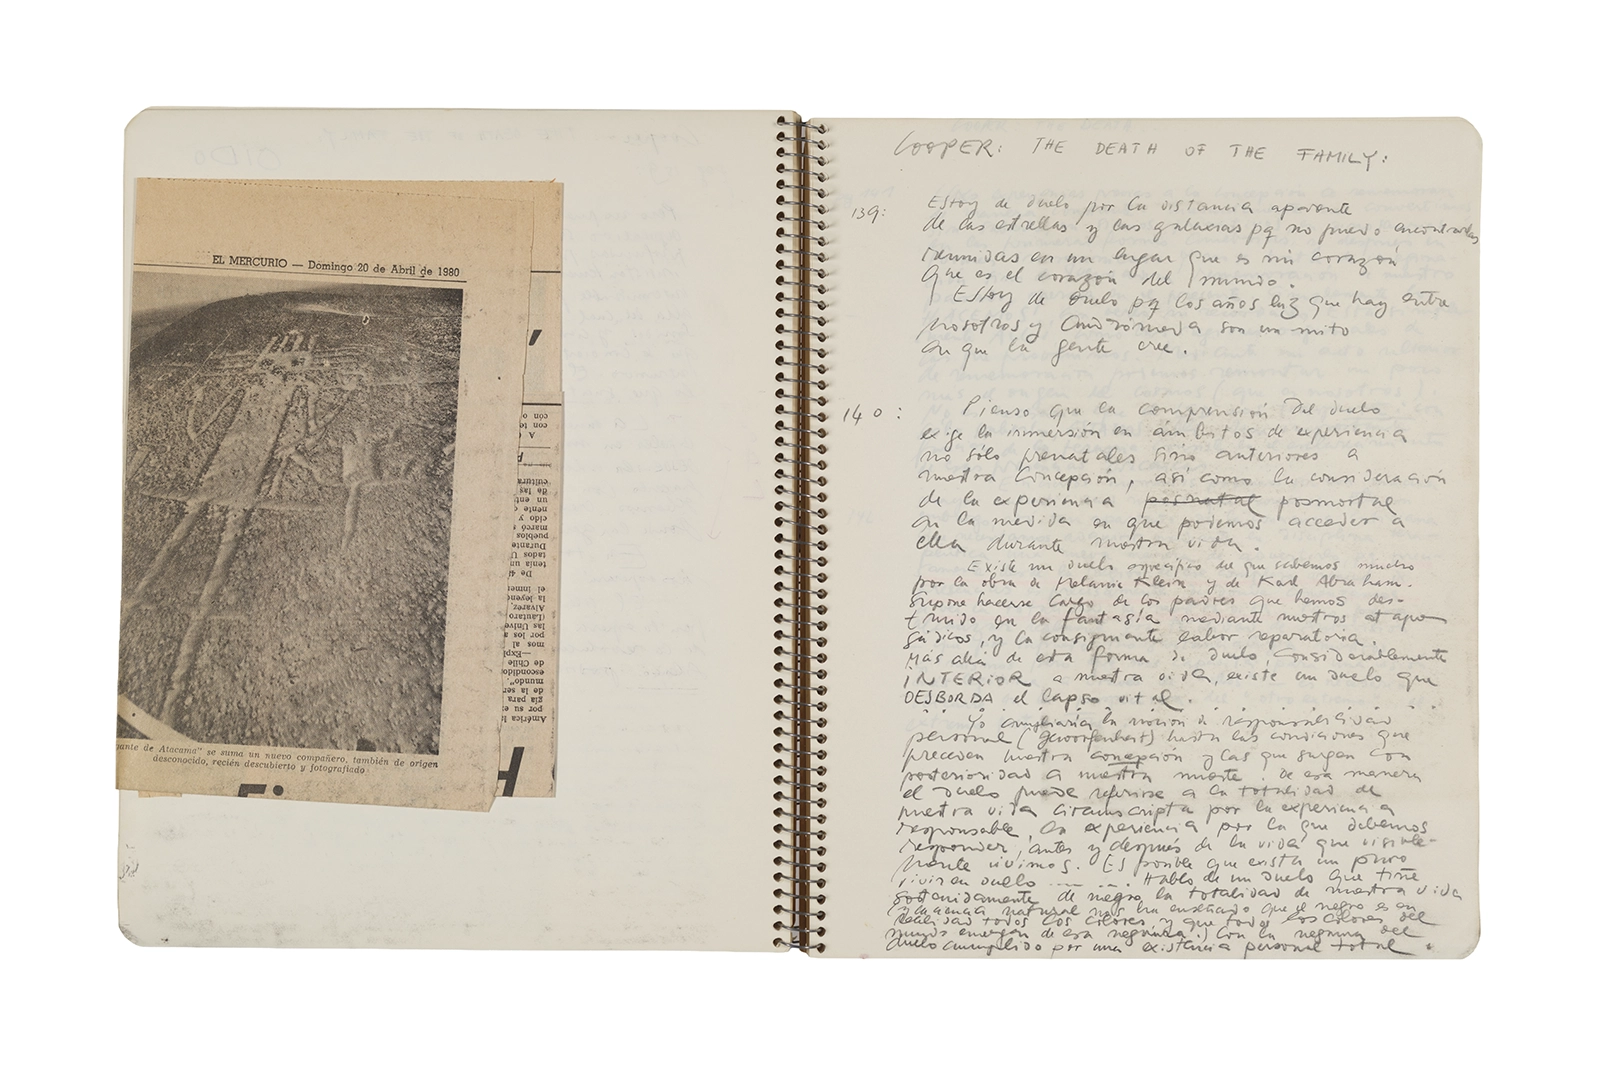 EL MERCURIO — Domingo 20 de Abril de 1980
gante de Atacama" se suma un nuevo compañero, también de origen
desconocido, recién descubierto y fotografiado
con o
con te
A
cultura
de las
un ent
nente
cido y
marco s
pueblos
Durante
tados U
tenía un
De 4
el inmer
la leyend
Alvarez,
(Lautaro
las Unive
por los a
mos al
—Expl
de Chile
escondidos
mundo".
de la ser
gía para
por su e
América l
COOPER: THE DEATH OF THE FAMILY:
139: Estoy de duelo por la distancia aparente
de las estrellas y las galaxias pq no puedo encontrarlas
reunidas en un lugar que es mi corazón
que es el corazón del mundo.
Estoy de duelo pq los años luz que hay entre
nosotros y Andrómeda son un mito
en que la gente cree.
140: Pienso que la comprensión del duelo
exige la inmersión en ámbitos de experiencia
no sólo prenatales sino anteriores a
nuestra concepción, así como la consideración
de la experiencia posnatal posmortal
en la medida en que podemos acceder a
ella durante nuestra vida.
Existe un duelo específico del que sabemos mucho
por la obra de Melanie Klein y de Karl Abraham.
Supone hacerse cargo de los padres que hemos des-
truido en la fantasía mediante nuestros at
y la consiguiente labor reparatoria.
Más allá de esta forma de duelo, considerablemente
INTERIOR a nuestra vida, existe un duelo que
DESBORDA el lapso vital.
Yo ampliaría la noción de responsabilidad
personal ( ) hasta las condiciones que
preceden nuestra concepción y las que surgen con
posterioridad a nuestra muerte. De esa manera
el duelo puede referirse a la totalidad de
nuestra vida circunscripta por la experiencia
responsable, la experiencia por la que debemos
responder, antes y después de la vida que visible-
mente vivimos. Es posible que exista un puro
vivir en duelo ... Hablo de un duelo que tiñe
sostenidamente de negro la totalidad de nuestra vida
y la ciencia natural nos ha enseñado que el negro es en
realidad todos los colores y que todos los colores del
mundo emergen de esa negrura.) Con la negrura del
duelo cumplido por una existencia personal total.